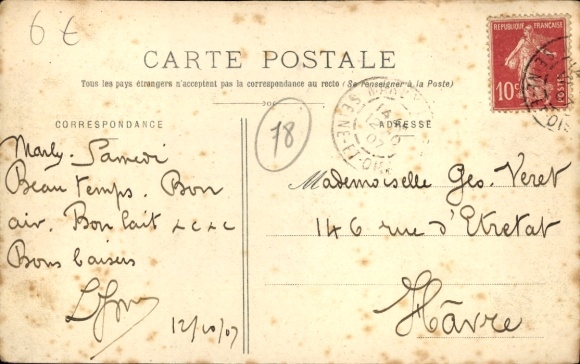 6 €
CARTE POSTALE
Tous les pays étrangers n'acceptent pas la correspondance au recto (Se renseigner à la Poste)
CORRESPONDANCE
ADRESSE
78
REPUBLIQUE FRANÇAISE
10c
POSTES
MARLY
SEINE-ET-OISE
12
07
Marly - Samedi
Beau temps. Bon
air. Bon lait &c &c
Bons baisers
12/10/07
Mademoiselle Geo. Veret
146 rue d'Etretat
Hâvre